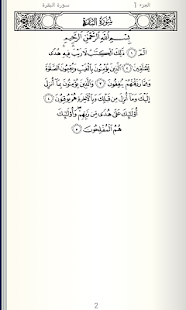 الجزء 1 سورة البقرة
سُورَةُ البَقَرَةِ
بِسْمِ اللَّهِ الرَّحْمَٰنِ الرَّحِيمِ
الٓمٓ ١ ذَٰلِكَ الْكِتَٰبُ لَا رَيْبَ فِيهِ هُدًى
لِّلْمُتَّقِينَ ٢ الَّذِينَ يُؤْمِنُونَ بِالْغَيْبِ وَيُقِيمُونَ الصَّلَوٰةَ
وَمِمَّا رَزَقْنَٰهُمْ يُنفِقُونَ ٣ وَالَّذِينَ يُؤْمِنُونَ بِمَا أُنزِلَ
إِلَيْكَ وَمَا أُنزِلَ مِن قَبْلِكَ وَبِالْءَاخِرَةِ هُمْ يُوقِنُونَ ٤
أُولَٰئِكَ عَلَىٰ هُدًى مِّن رَّبِّهِمْ وَأُولَٰئِكَ
هُمُ الْمُفْلِحُونَ ٥
2